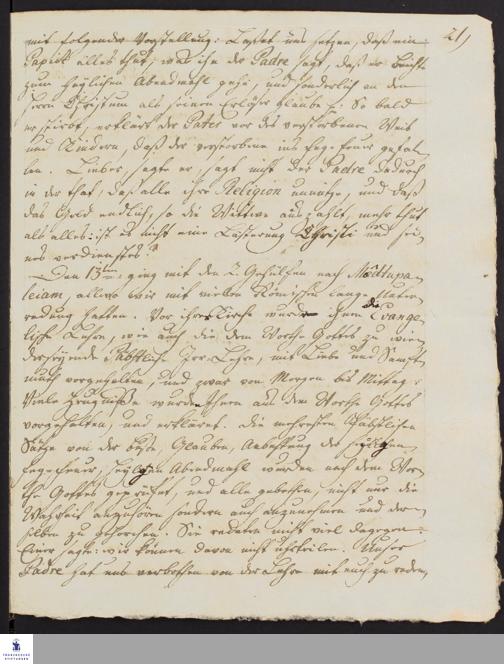 21)
mit folgender Vorstellung: Lasset uns setzen, daß ein
Papist alles thut, was ihn der Padre sagt, daß er beichte
zum heyligen Abendmahl gehe, und sonderlich an den
Herrn Christum als seinen Erlöser glaube p: So bald
er stirbt, erklärt der Pater vor des verstorbenen Weib
und Kindern, daß der verstorbene ins Feg-feuer gefal-
len. Lieber, sagte er, sagt nicht der Padre dadurch
in der that, daß alle ihre Religion unnütze, und daß
das Geld endlich, so die Wittwe auszahlt, mehr thut
als alles: ist es nicht eine Lästerung Christi und sei-
nes verdienstes?
Den 13ten ging mit den 2. Gehülfen nach Möttupa-
leiam, allwo wir mit vielen Römischen lange Unter-
redung hatten. Vor ihrer Kirche wurde ihnen die Evange-
lische Lehre, wie auch die dem Worte Gottes zu wie-
derseyende Päbstliche Irr-Lehre, mit Liebe und Sanft-
muth vorgehalten, und zwar von Morgen bis Mittag:
Viele Zeugnisse wurden ihnen aus dem Worte Gottes
vorgehalten, und erkläret. Die mehresten Päbstlichen
Sätze von der Buße, Glauben, Anbethung der heyligen,
Fegefeuer, heyligen Abendmahl wurden nach dem Wor-
te Gottes geprüfet, und alle gebethen, nicht nur die
Wahrheit anzuhören sondern auch anzunehmen und der-
selben zu gehorchen. Sie redeten nicht viel dagegen:
Einer sagte: wir können davon nicht urtheilen. Unser
Padre hat uns verbothen von der Lehre mit euch zu reden,
FRANCKESCHE
STIFTUNGEN